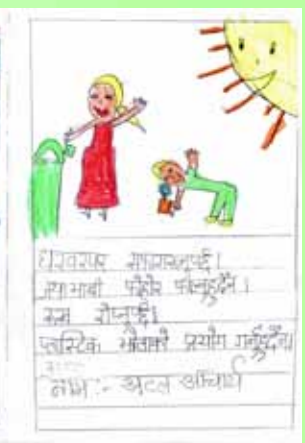 घरवरपर सफा राख्नुपर्छ।
जथाभावी फोहोर फाल्नुहुदैन।
रुख रोप्नुपर्छ।
प्लास्टिक झोलाको प्रयोग गर्नुहुदैन।
नाम :- अटल आचार्य